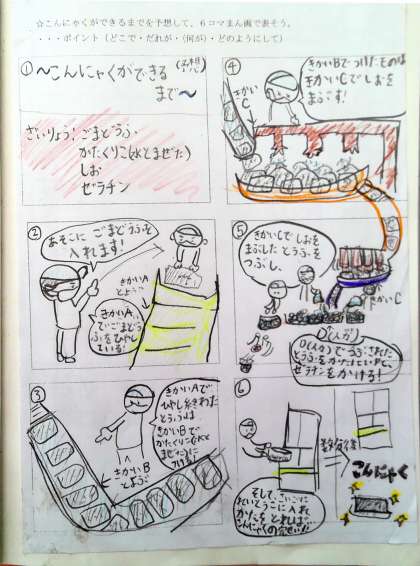 ☆こんにゃくができるまでを予想して、６コマまん画で表そう。
・・・ポイント（どこで・だれが・（何が）・どのようにして）
①
〜こんにゃくができる
まで〜
(予想)
ざいりょう：ごまどうふ
かたくりこ(水とまぜた)
しお
ゼラチン
②
あそこに ごまどうふを
入れます！
きかいA
とよう
きかいA
でごまどう
ふをひやし
ている！
③
きかいAで
ひやし終わた
とうふは
きかいBで
かたくりこ(水と
まぜた)に
つける！
きかいB
とよう
④
きかいBでつけたものは
きかいCでしおを
まぶす！
きかい
C
⑤
きかいCでしおを
まぶした とうふを
つぶし、
きかいC
D(人が)
D(人が)でつぶされた
ゼラチンをかける！
⑥
そして、さいごに
れいとうこに入れ
かたをとれば、こ
んにゃくの完せい！
数分後
こんにゃく